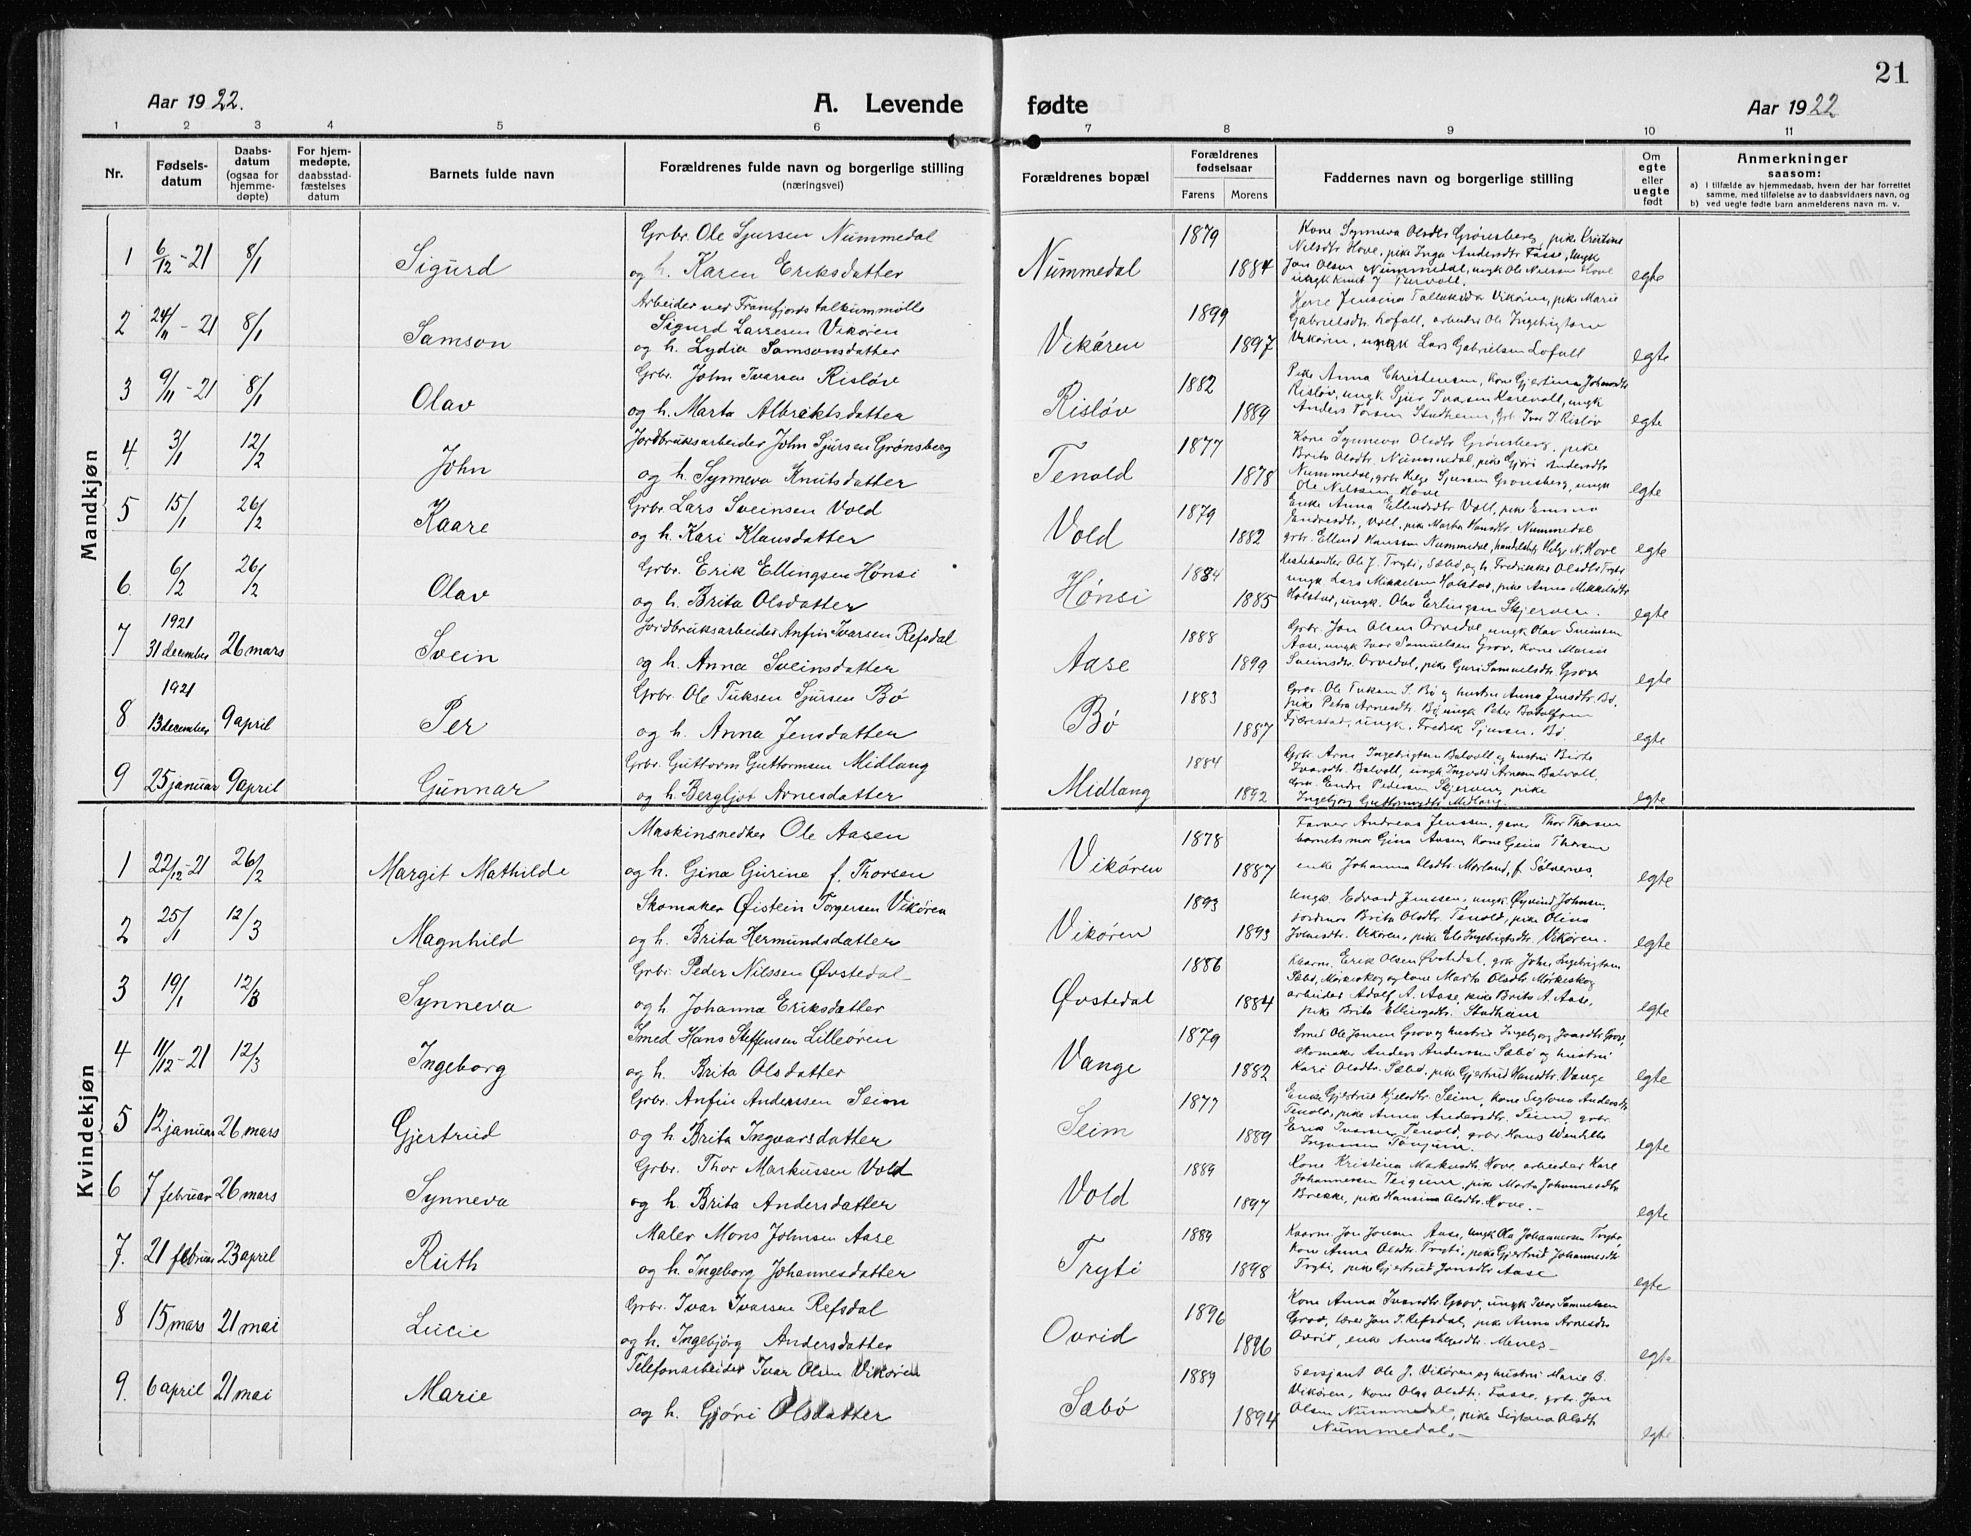 21
Aar 1922.
A. Levende fødte
Aar 1922
1 2 3 4 5 6 7 8 9 10 11
Nr.
Fødsels-
datum
Daabs-
datum
(ogsaa for
hjemme-
døpte)
For hjem-
medøpte,
daabsstad-
fæstelses
datum
Barnets fulde navn
Forældrenes fulde navn og borgerlige stilling
(næringsvei)
Forældrenes bopæl
Forældrenes
fødselsaar
Farens Morens
Faddernes navn og borgerlige stilling
Om
egte
eller
uegte
født
Anmerkninger
saasom:
a) I tilfælde av hjemmedaab, hvem der har forrettet
samme, med tilføielse av to daabsvidners navn, og
b) ved uegte fødte barn anmelderens navn m. v.
Mandkjøn
1 6/12-21 8/1 Sigurd
Grbr. Ole Sjursen Nummedal
og h. Karen Eriksdatter
Nummedal 1879 1884
Kone Synneva Olsdtr Grønsberg, pike Kristine
Nilsdtr Hove, pike Inga Andersdtr Fosse, ungk
Jon Olsen Nummedal, ungk Ole Nilssen Hove
ungk Knut J Turvoll.
egte
2 24/11-21 8/1 Samson
Arbeider ved Framfjords talkummølle
Sigurd Larsesen Vikøren
og h. Lydia Samsonsdatter
Vikøren 1899 1897
Kone Jensina Vikøren, pike Marie
Gabrielsdtr. Lofall, arbeider Ole Ingebrigtsen
Vikøren, ungk Lars Gabrielsen Lofall
egte
3 9/11-21 8/1 Olav
Grbr. John Ivarsen Risløv
og h. Marta Albriktsdatter
Risløv 1882 1889
Pike Anna Christensen, kone Gjertina Johansdtr
Risløv, ungk Sjur Ivarsen Karevoll, ungk
Anders Torsen Stadheim, Grb. Ivar I. Risløv
egte
4. 3/1 12/2 John
Jordbruksarbeider John Sjursen Grønsberg
og h. Synneva Knutsdatter
Tenold 1877 1878
Kone Synneva Olsdtr Grønsberg, pike
Brita Olsdtr. Nummedal, pike Gjøri Andersdtr
Nummedal, grbr. Helge Sjursen Grønsberg, ungk
Ole Nilssen Hove
egte
5 15/1 26/2 Kaare
Grbr. Lars Sveinsen Vold
og h. Kari Klausdatter
Vold 1879 1882
Enke Anna Ellendsdtr Voll, pike
Endresdtr, Voll, pike Marta Hansdtr Nummedal
grbr. Ellend Hanssen Nummedal, handelsbtj. Helge N. Hove
egte
6 6/2 26/2 Olav
Grbr. Erik Ellingsen Hønsi
og h. Brita Olsdatter
Hønsi 1884 1885
Hestehandler Ole J. Tryti, Sæbø, og h. Fredrikke Olsdtr Tryti
ungk Lars Mikkelsen Holstad, pike Anna Mikkelsdtr
Holstad, ungk. Olav Erlingsen Skjerven.
egte
7 1921 31 december 26 mars Svein
Jordbruksarbeider Anfin Ivarsen Refsdal
og h. Anna Sveinsdatter
Aase 1888 1890
Grbr. Jon Olsen Orvedal, ungk Olav Sveinsen
Aase, ungk Ivar Samuelsen Grov, kone Marie
Sveinsdtr. Orvedal, pike Guri Samuelsdtr. Grov
egte
8 1921 13 december 9 april Per
Grbr. Ole Tuksen Sjursen Bø
og h. Anna Jensdatter
Bø 1883 1887
Grbr. Ole Tuksen S. Bø og hustru Anna Jensdtr. Bø,
pike Petra Arnesdtr. Bø, ungk Peter
Fjærestad, ungk. Fredrik Sjursen, Bø
egte
9 25 januar 9 april Gunnar
Grbr. Guttorm Guttormsen Midlang
og h. Bergljot Arnesdatter
Midlang 1884 1892
Grbr Arne Ingebrigtsen Balvoll og hustru Birte
Ivarsdtr. Balvoll, ungk Ingvald Arnesen Balvoll,
Endre Pedersen Skjerven, pike
Ingebjørg Guttormsdtr. Midlang.
egte
Kvindekjøn
1 22/12-21 26/2 Margit Mathilde
Maskinsnedker Ole Aasen
og h. Gina Gurine f. Thorsen
Vikøren 1878 1887
Farver Andreas Jenssen, garver Thor Thorsen
barnets mor Gina Aasen, kone Gina Thorsen
enke Johanna Olsdtr. Morland, f. Solvernes.
egte
2 25/1 12/3 Magnhild
Skomaker Øistein Torgersen Vikøren
og h. Brita Hermundsdatter
Vikøren 1893 1893
Ungk. Edvard Jenssen, ungk Øyvind Johnsen,
Jordmor Brita Olsdtr. Tenold, pike Olina
Johnsdtr. Vikøren, pike Eli Ingebrigtsdtr. Vikøren.
egte
3 19/1 12/3 Synneva
Grbr. Peder Nilssen Øvstedal
og h. Johanna Eriksdatter
Øvstedal 1886 1884
Kaarm. Erik Olsen Øvstedal, grbr. John Ingebrigtsen
Sæbø, Mørkeskog og kone Marta Olsdtr Mørkeskog
arbeider Adolf A. Aase, pike Brita A. Aase,
pike Brita Ellingsdtr. Stadheim
egte
4 11/12-21 12/3 Ingeborg
Smed Hans Steffensen Lilleøren
og h. Brita Olsdatter
Vange 1879 1882
Smed Ole Jonsen Grov og hustru Ingebjørg Jonsdtr Grov,
skomaker Anders Anderssen Sæbø og hustru
Kari Olsdtr. Sæbø, pike Gjertrud Hansdtr. Vange
egte
5 12 januar 26 mars Gjertrud
Grbr. Anfin Anderssen Seim
og h. Brita Ingvarsdatter
Seim 1877 1889
Enke Gjertrud Kjelsdtr Seim, kone Sigtona Andersdtr
Tenold, pike Anna Andersdtr. Seim, grbr.
Erik Ivarsen Tenold, grbr. Hans
Ingvarsen Tønjum.
egte
6 7 februar 26 mars Synneva
Grbr. Thor Markussen Vold
og h. Brita Andersdatter
Vold 1889 1897
Kone Kristina Markusdtr. Hove, arbeider Karl
Johannesen Teigum, pike Marta Johannesdtr
Brekke, pike Hansina Olsdtr. Hove.-
egte
7. 21 februar 23 april Ruth
Maler Mons Johnsen Aase
og h. Ingeborg Johannesdatter
Tryti 1889 1898
Kaarm. Jon Jonsen Aase, ungk Ola Johannesen Tryti,
Kone Anna Olsdtr. Tryti, pike Gjertrud Johannesdtr
Tryti, pike Gjertrud Jonsdtr Aase
egte
8 15 mars 21 mai Lucie
Grbr. Ivar Ivarsen Refsdal
og h. Ingebjørg Andersdatter
Ovrid 1896 1896
Kone Anna Ivarsdtr. Grov, ungk Ivar Samuelsen
Grov, lærer Jon I. Refsdal, pike Anna Arnesdtr
Ovrid, enke Anna Menes-
egte
9. 6 april 21 mai Marie
Telefonarbeider Ivar Olsen Vikøren
og h. Gjøri Olsdatter
Sæbø 1889 1894
Sersjant Ole J. Vikøren og hustru Marie B.
Vikøren, kone Olga Olsdtr. Fosse, grbr. Jon
Olsen Nummedal, pike Sigtona Olsdtr
Nummedal.-
egte